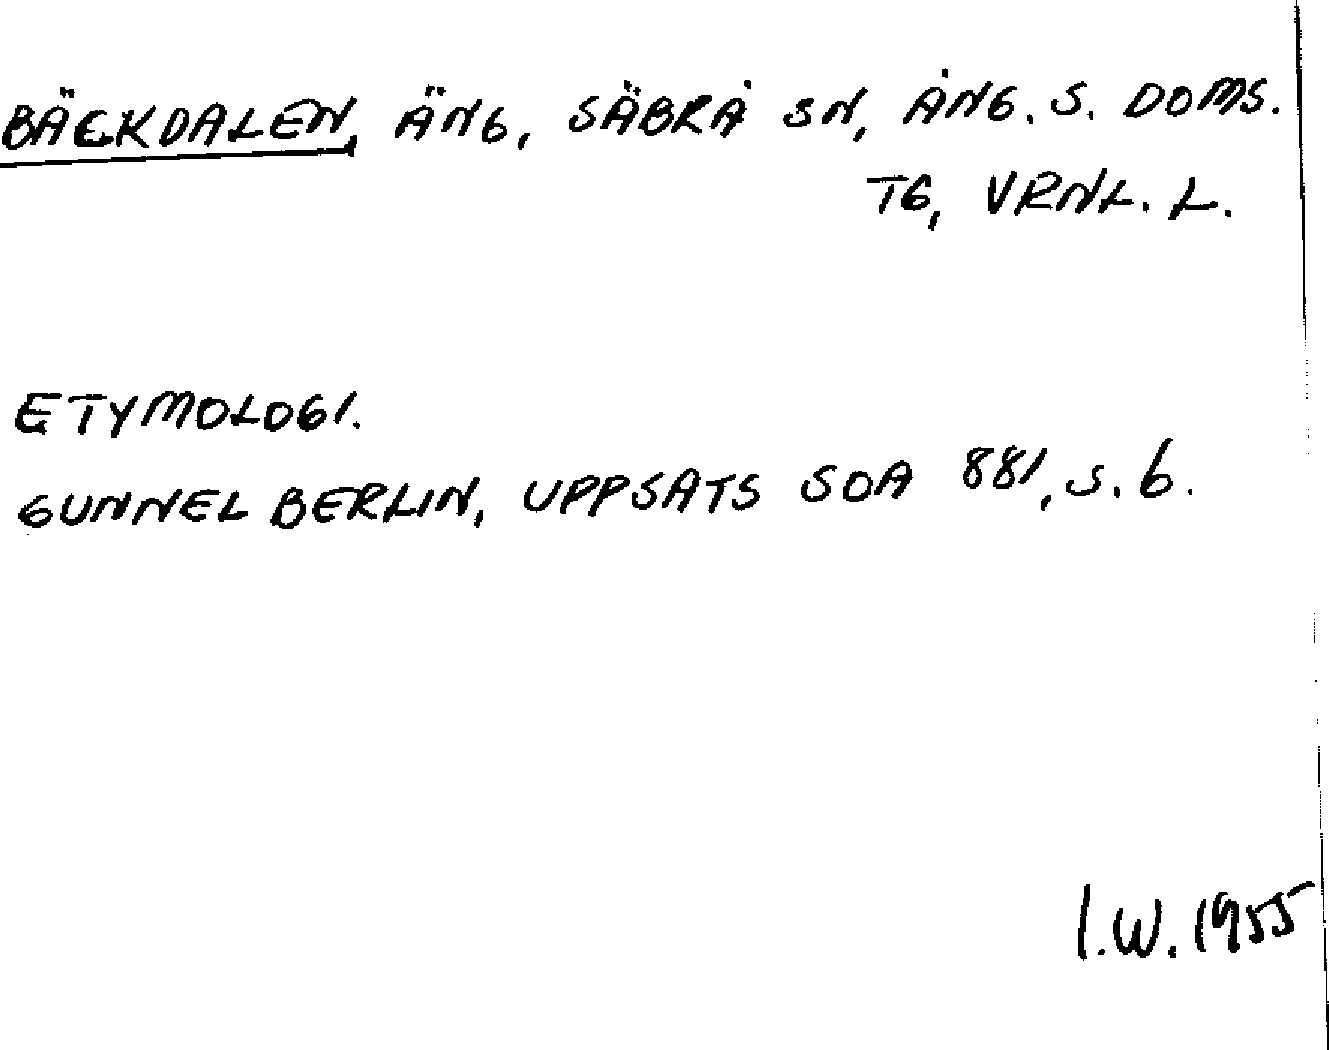 BÄCKDALEN, ÄNG, SÄBRÅ SN, ÅNG. S. DOMS.
TG, VRNL. L.
ETYMOLOGI.
GUNNEL BERLIN, UPPSATS SOA 881, S. 6.
I.W. 1955